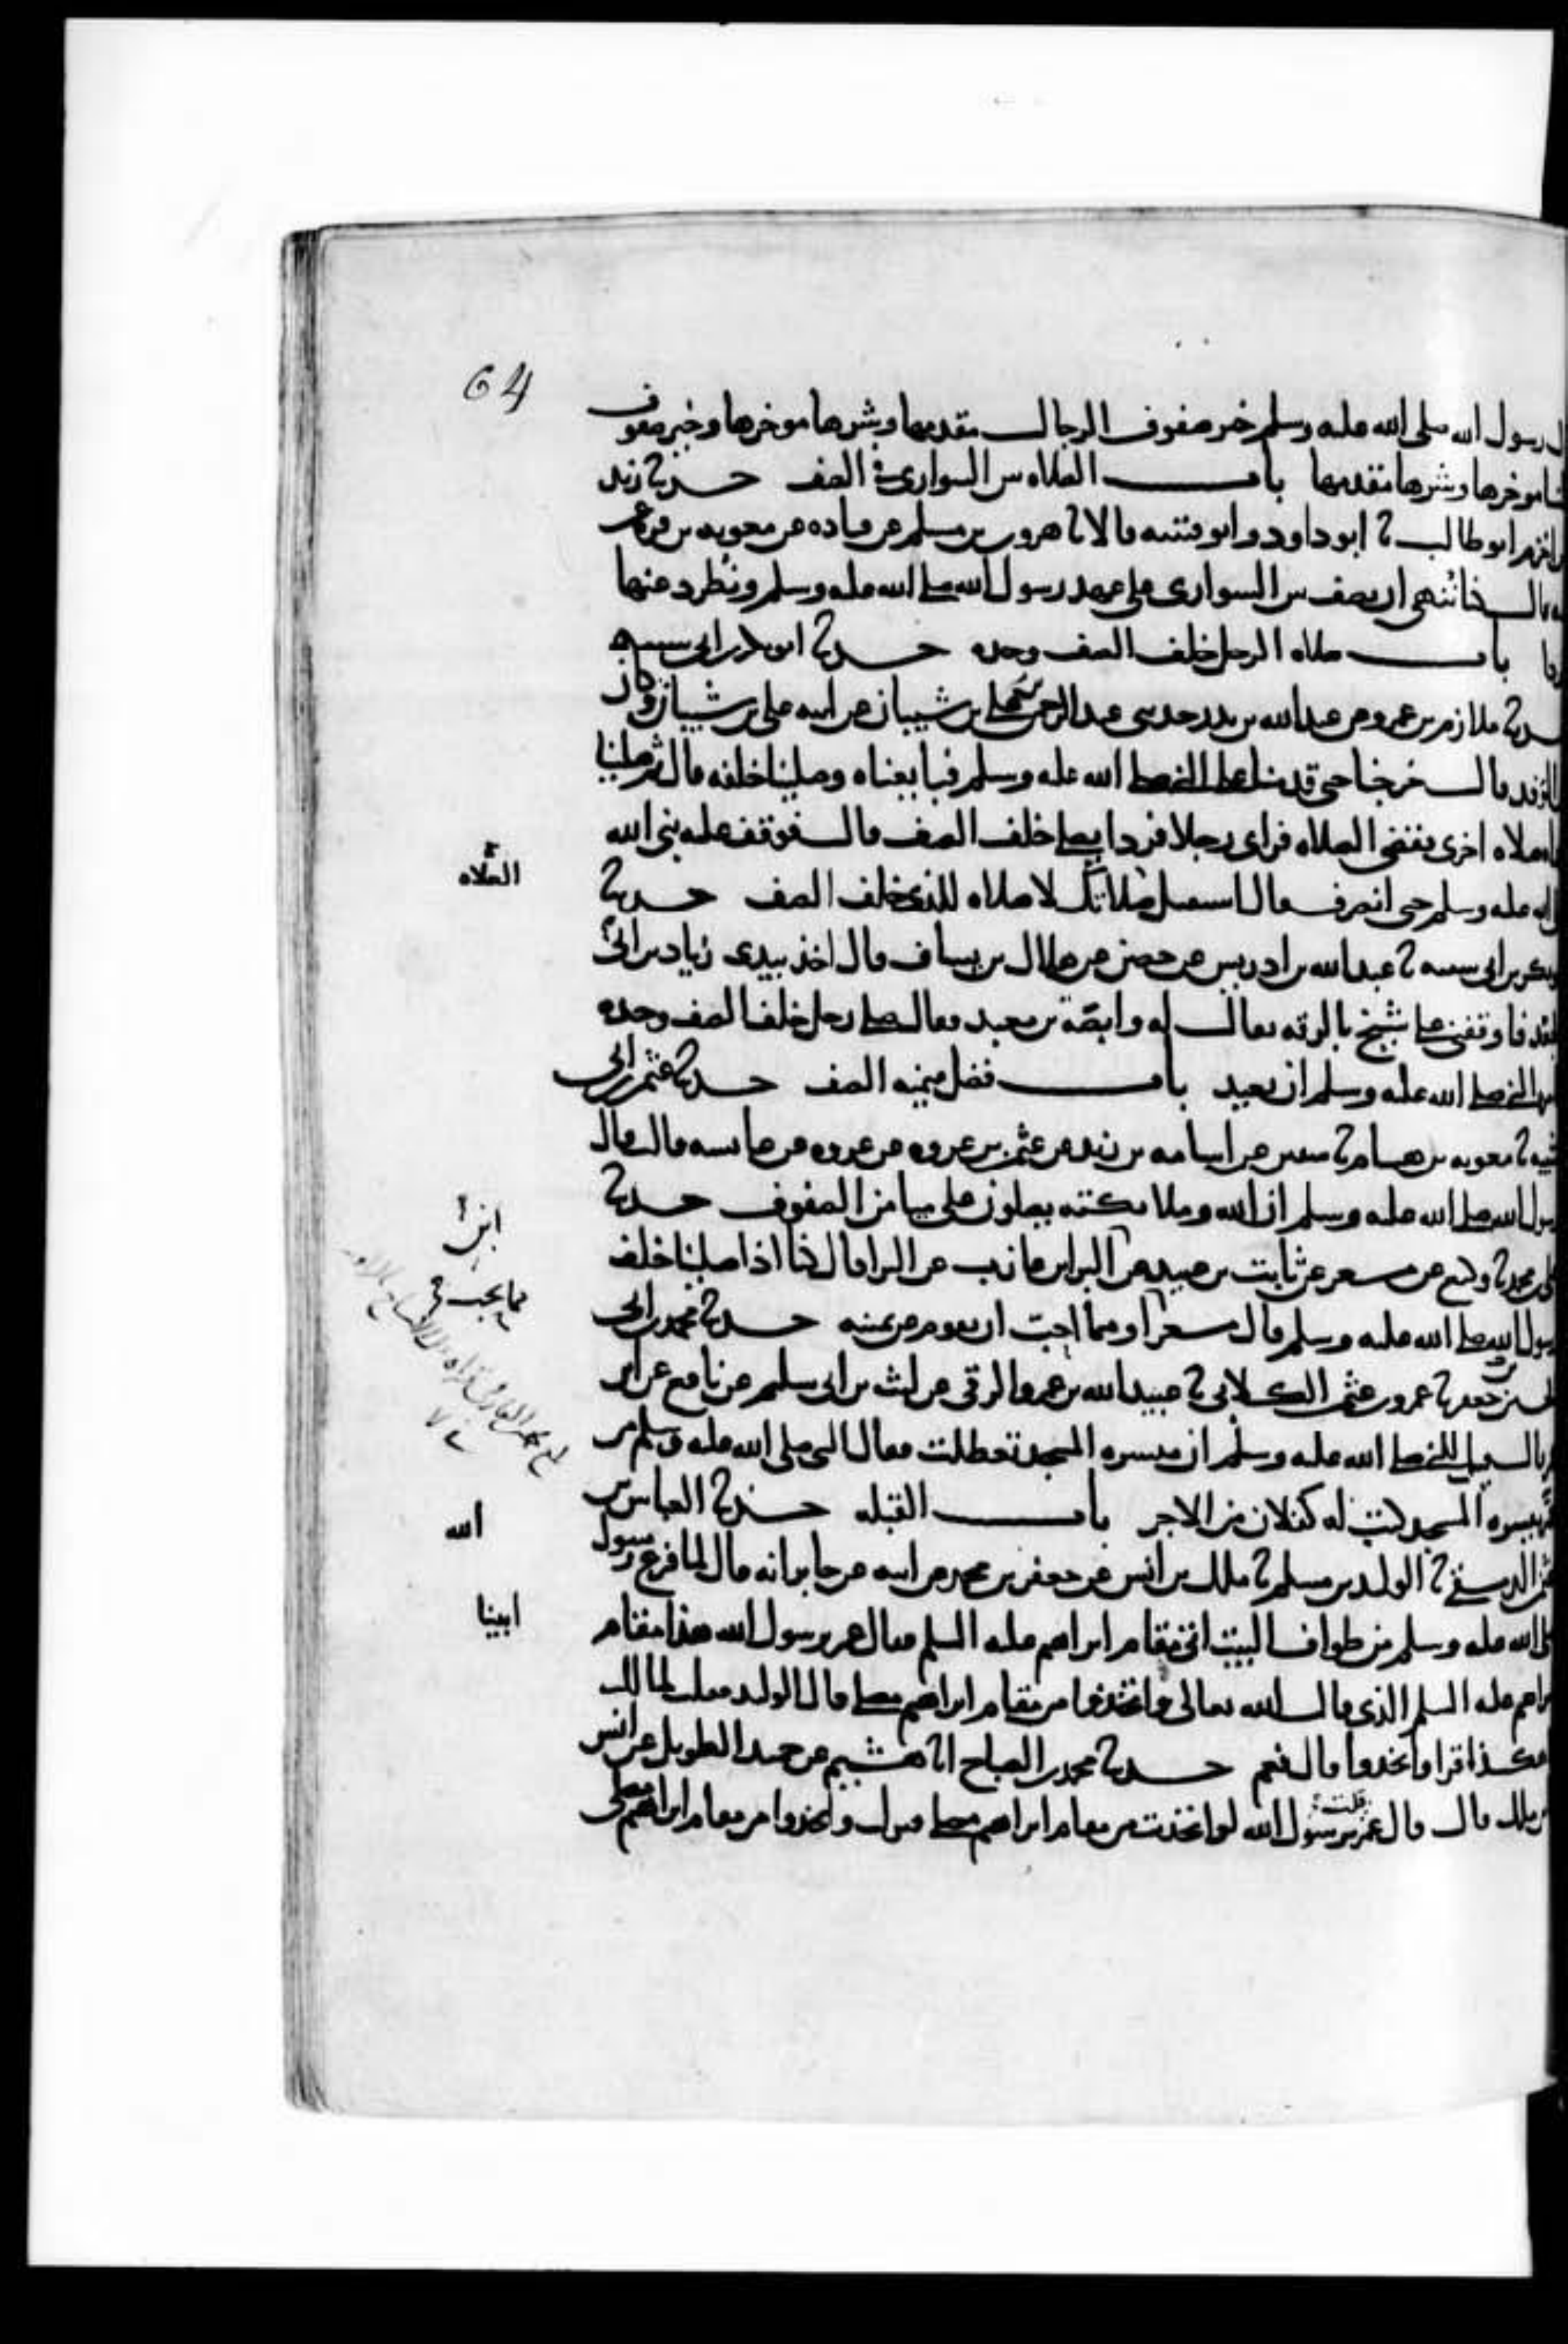 64
رسول الله صلى الله عليه وسلم خير صفوف الرجال مقدمها وشرها موخرها وخير صفوف
موخرها وشرها مقدمها باب الصلاه بين السواري في الصف حدثنا زيد
ابو طالب ثنا ابو داود وابو قتيبه قالا ثنا هرون بن مسلم عن قتاده عن معويه بن قره عن
قال كنا ننهى ان نصف بين السواري على عهد رسول الله صلى الله عليه وسلم ونطرد عنها
باب صلاه الرجل خلف الصف وحده حدثنا ابو بكر بن ابي شيبه
ثنا ملازم بن عمرو عن عبد الله بن بدر حدثني عبد الرحمن بن علي بن شيبان عن ابيه علي بن شيبان وكان
الوفد قال خرجنا حتى قدمنا على النبي صلى الله عليه وسلم فبايعناه وصلينا خلفه قال ثم صلينا
صلاه اخرى فقضى الصلاه فراى رجلا فردا يصلي خلف الصف قال فوقف عليه نبي الله
الصلاه
الله عليه وسلم حين انصرف قال استقبل صلاتك لا صلاه للذي خلف الصف حدثنا
بكر بن ابي شيبه ثنا عبد الله بن ادريس عن حصين عن هلال بن يساف قال اخذ بيدي زياد بن ابي
الجعد فاوقفني على شيخ بالرقه يقال له وابصة بن معبد فقال صلى رجل خلف الصف وحده
النبي صلى الله عليه وسلم ان يعيد باب فضل ميمنه الصف حدثنا عثمن بن ابي
شيبه ثنا معويه بن هشام ثنا سفين عن اسامه بن زيد عن عثمن بن عروه عن عروه عن عايشه قالت قال
رسول الله صلى الله عليه وسلم ان الله وملائكته يصلون على ميامن الصفوف حدثنا
ابن
علي بن محمد ثنا وكيع عن مسعر عن ثابت بن عبيد عن البرا بن عازب عن البرا قال كنا اذا صلينا خلف
مما نحب
رسول الله صلى الله عليه وسلم قال مسعر او مما احب ان نقوم عن يمينه حدثنا محمد بن ابي
الحسين بن جعفر ثنا عمرو بن عثمن الكلابي ثنا عبيد الله بن عمرو الرقي عن ليث بن ابي سليم عن نافع عن ابن
قال قيل للنبي صلى الله عليه وسلم ان ميسره المسجد تعطلت فقال النبي صلى الله عليه وسلم من
ميسره المسجد كتب له كفلان من الاجر باب القبله حدثنا العباس بن
عثمن الدمشقي ثنا الوليد بن مسلم ثنا ملك بن انس عن جعفر بن محمد عن ابيه عن جابر انه قال لما فرغ رسول
الله
صلى الله عليه وسلم من طواف البيت اتى مقام ابراهيم عليه السلم فقال عمر يرسول الله هذا مقام
ابينا
ابراهيم عليه السلم الذي قال الله تعالى واتخذوا من مقام ابراهيم مصلى قال الوليد فقلت لمالك
هكذا قرا واتخذوا قال نعم حدثنا محمد بن الصباح انا هشيم عن حميد الطويل عن انس
بن ملك قال قال عمر قلت يرسول الله لو اتخذت من مقام ابراهيم مصلى فنزلت واتخذوا من مقام ابراهيم مصلى